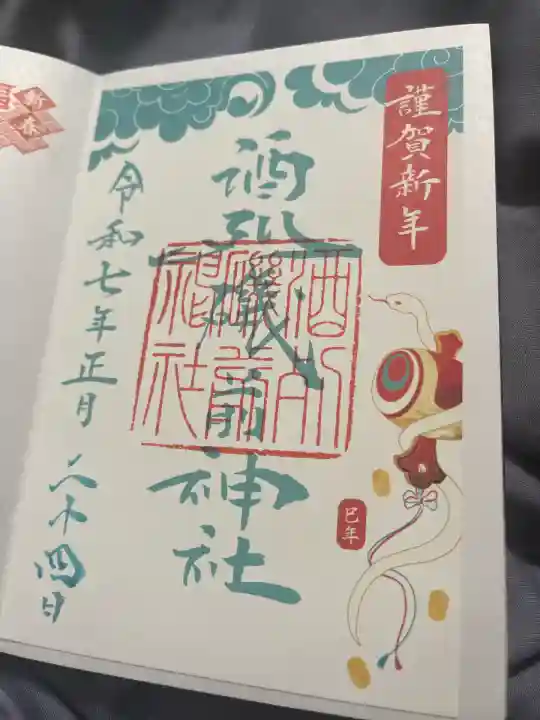 謹賀新年
酒列磯前神社
酒列磯前神社
巳年
令和七年正月二十四日
新春